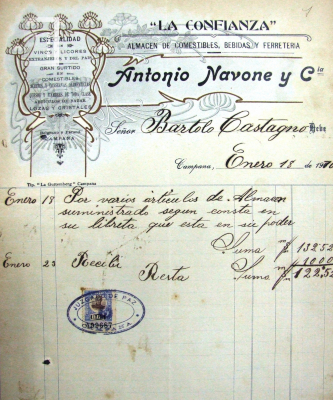 "LA CONFIANZA"
ALMACEN DE COMESTIBLES, BEBIDAS Y FERRETERIA
Antonio Navone y Cía
ESPECIALIDAD
EN
VINOS Y LICORES
EXTRANJEROS Y DEL PAIS
GRAN SURTIDO
EN
COMESTIBLES
LOZAS Y CRISTALES
CAMPANA
Señor Bartolo Castagno Debe
Campana, Enero 18 de 19
Tip. "La Guttenberg" Campana
Enero 18 Por varios artículos de Almacen
suministrado segun consta en
su libreta que esta en su poder
Suma m/n 13252
Enero 23 Recibí 1000
Resta Suma m/n 12252
JUZGADO DE PAZ
CAMPANA